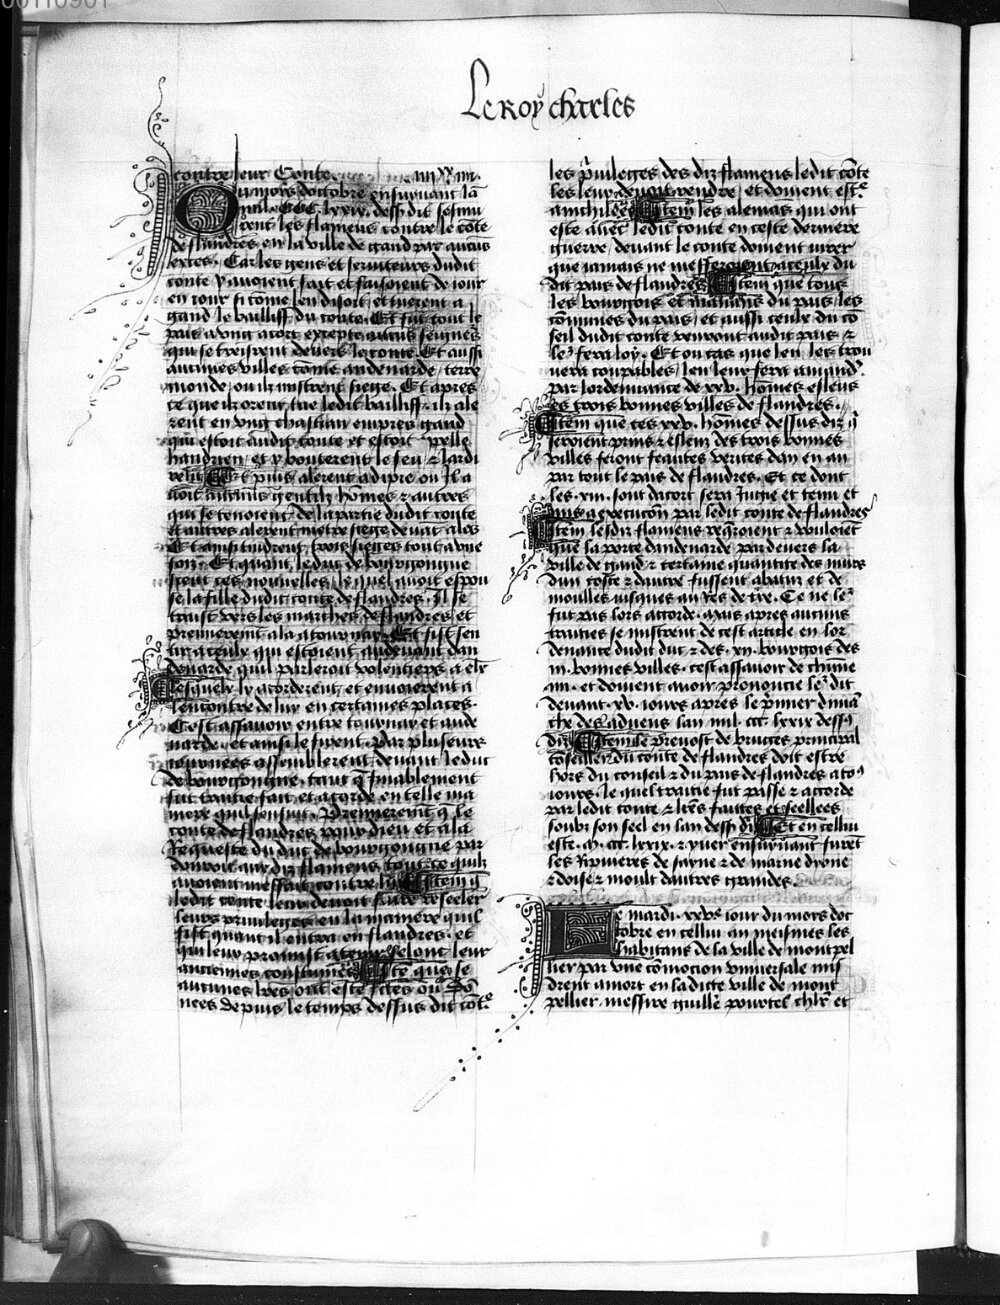 Le Roy charles
contre leur Conte. iiiixx iiii.
Ou mois doctobre ensuiuant lan
mil CCC. lxxix. dess9 dit sesmu
rent les flamens contre le côte
de flandres en la ville de gand par aucus
Car les gens et seruiteurs dudit
conte y auoient fait et faisoient de iour
en iour si côme len disoit et tuerent a
gand le bailliff du conte. Et fut tout le
pais a vng acort excepte aucus seigneˢ
qui se treirent deuers le conte. Et aussi
aucunes villes côme audenarde terre
monde, ou ilz mistrent siege. Et apres
ce que ilz orent tue ledit bailliff. ilz ale
rent en vng chastiau empres gand
qui estoit dudit conte et estoit appelle
handrien, et y bouterent le feu &
Et puis alerent a dipre ou il a
uoit aucuns gentilz hômes & autres
qui se tenoient de la partie dudit conte
et autres alerent mettre siege deuāt
Et ainsi tindrent trois sieges tout a vne
fois. Et quant le duc de bourgongne
sceut ces nouuelles, le quel auoit espou
se la fille dudit conte de flandres. Il se
traist vers les marches de flandres, et
premierement a la a tournay. Et fist sen
tir a ceulx qui estoient audeuant dau
denarde quil parleroit volentiers a eulx
lesquelz ly acorderent, et enuoierent a
lencontre de luy en certaines places.
Cest assauoir entre tournay et aude
narde. et ainsi le firent. Par pluseurs
iournees assemblerent deuant le duc
de bourgongne. tant q̄ finablement
fut traitie fait et acorde en telle ma
niere quil sensuit. Premierement q̄ le
conte de flandres pour dieu et a la
Requeste du duc de bourgongne par
donroit aux diz flamens tout ce quilz
auoient meffait contre luy Item q̄
ledit conte leur deuoit faire reseeler
leurs priuileges en la maniere quil
fist quant il entra en flandres. et
quil leur promist a tenir selont leur
anciennes coustumes Item que se
aucunes lres ont este fctes ou dô
nees depuis le temps dessus dit côtᵉ
les p̄uileges des diz flamens ledit côte
les leur deuoit rendre, et doiuent estᵉ
anichileēs Item les alemās qui ont
este auec ledit conte en ceste derniere
guerre, deuant le conte doiuent iurer
que iamais ne mefferoient a ceulx du
dit pais de flandres Item que tous
les bourgois et manans du pais, les
cômunes du pais, et aussi ceulx du cô
seil dudit conte venront audit pais &
leˢ fera loy. Et ou cas que len les trou
uera coupables, len leur fera amandᵉ.
par lordenance de xxv. hômes esleus
es trois bonnes villes de flandres.
Item que ces xxv. hômes dessus diz q̄
seroient prins & esleuz des trois bonnes
villes feront veritez dan en an
par tout le pais de flandres. Et ce dont
les .xiii. sont dacort sera Iugie et tenu et
mis a execucōn par ledit conte de flandres
Item lesdiz flamens reqroient & vouloiēt
que la porte dandenarde, par deuers la
ville de gand & certaine quantite des murs
dun coste & dautre fussent abatuz et de
moulles iusques au Res de t're. Ce ne leˢ
fut pas lors accorde. mais apres aucuns
traities se mistrent de cest article en lor
denance dudit duc & des .xii. bourgois des
iii. bonnes villes. cest assauoir de chūne
iiii. et doiuent auoir prononcie le dit
deuant .xv. iours apres le p̄mier diman
che des aduens lan mil. ccc. lxxix dess9
dit. Item le preuost de bruges principal
côseiller du conte de flandres doit estre
hors du conseil & du pais de flandres a to9
iours. le quel traitie fut passe & accorde
par ledit conte & lres faittes et seellees
soubz son seel en lan dess9 dit Et en cellui
este. m. ccc. lxxix. & yuer ensuiuant furēt
les Riuieres de sayne & de marne dyone
& doise & moult dautres grandes.
Le mardi .xxvᵉ iour du mois doc
tobre en cellui an meismes les
habitans de la ville de montpel
lier par vne cômocion vniuersale mis
drent a mort en ladicte ville de mont
pellier. messire guille pourtel chlr et